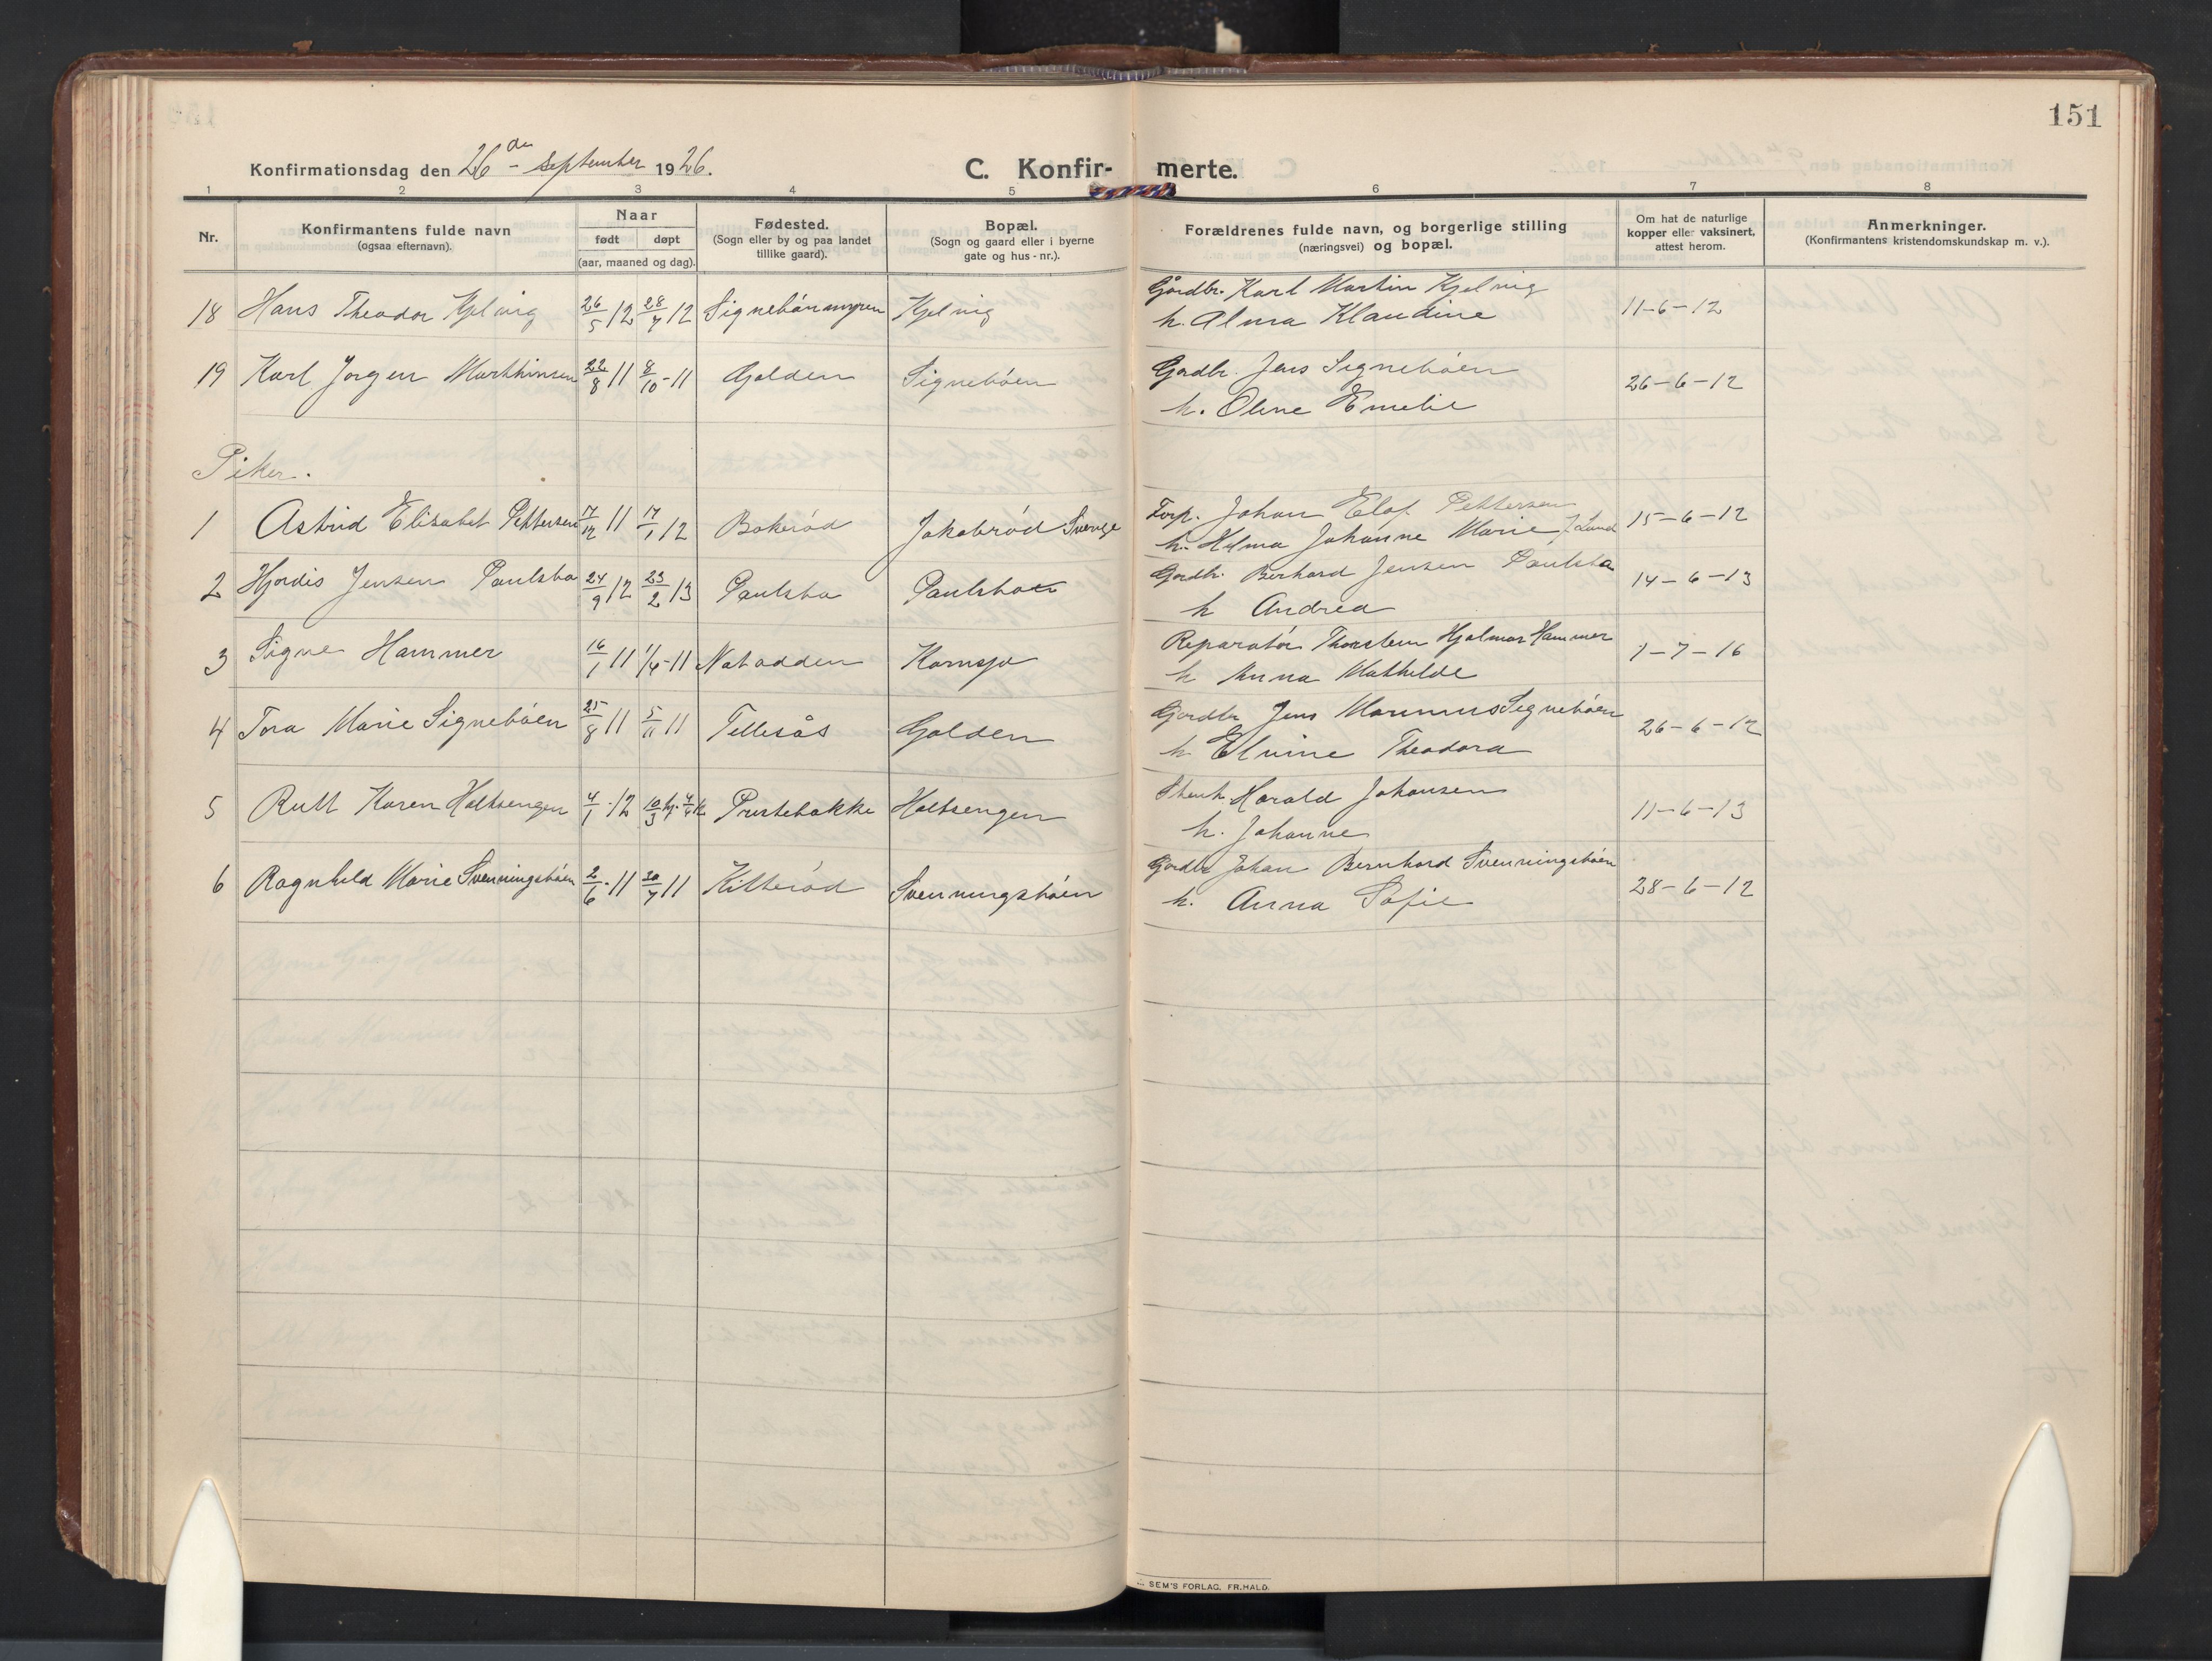 151
Konfirmationsdag den 26de - september 1926.
C. Konfir- merte.
1 2 3 4 5 6 7 8
Nr. Konfirmantens fulde navn (ogsaa efternavn). Naar født døpt (aar, maaned og dag). Fødested. (Sogn eller by og paa landet tillike gaard). Bopæl. (Sogn og gaard eller i byerne gate og hus-nr.). Forældrenes fulde navn, og borgerlige stilling (næringsvei) og bopæl. Om hat de naturlige kopper eller vaksinert, attest herom. Anmerkninger. (Konfirmantens kristendomskundskap m. v.).
18 Hans Theodor Kjelvig 26/5 12 28/7 12 Signebönmyren Kjelvig Gårdbr. Karl Martin Kjelvig 11-6-12
h. Alma Klaudine
19 Karl Jørgen Marthinsen 22/8 11 8/10-11 Golden Signeböen Gårdbr. Jens Signeböen 26-6-12
h. Oline Emelie
Piker.
1 Astrid Elisabet Pettersen 17/12 11 17/1 12 Bokeröd Jakobröd Sverige Forp. Johan Elof Pettersen 15-6-12
h. Hilma Johanne Marie f. Lund
2 Hjördis Jensen Paulsbo 24/9 12 23/2 13 Paulsbo Paulsbo Gårdbr. Berhard Jensen Paulsbo 14-6-13
h Andrea
3 Signe Hammer 16/1 11 1/4-11 Notodden Kornsjø Reparatör Thorstein Hjalmar Hammer 1-7-16
h Anna Mathilde
4 Tora Marie Signeböen 25/8 11 5/11 11 Tellesås Golden Gårdbr Jens Marinus Signeböen 26-6-12
h Elvine Theodora
5 Rutt Karen Holtsengen 4/1-12 10/3 hj. 4/4 k Prestebakke Holtsengen Stenh. Harald Johansen 11-6-13
h. Johanne
6 Ragnhild Marie Svenningsböen 2/6-11 30/7 11 Kitteröd Svenningsböen Gårdbr Johan Bernhard Svenningsböen 28-6-12
h. Anna Sofie
SEM'S FORLAG. FR. HALD.